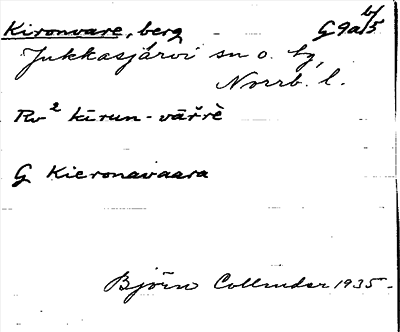 Kironvare, berg G9a b/5
Jukkasjärvi sn o. tg,
Norrb. l.
Rv² kirun-vār̆rè
G Kieronavaara
Björn Collinder 1935.